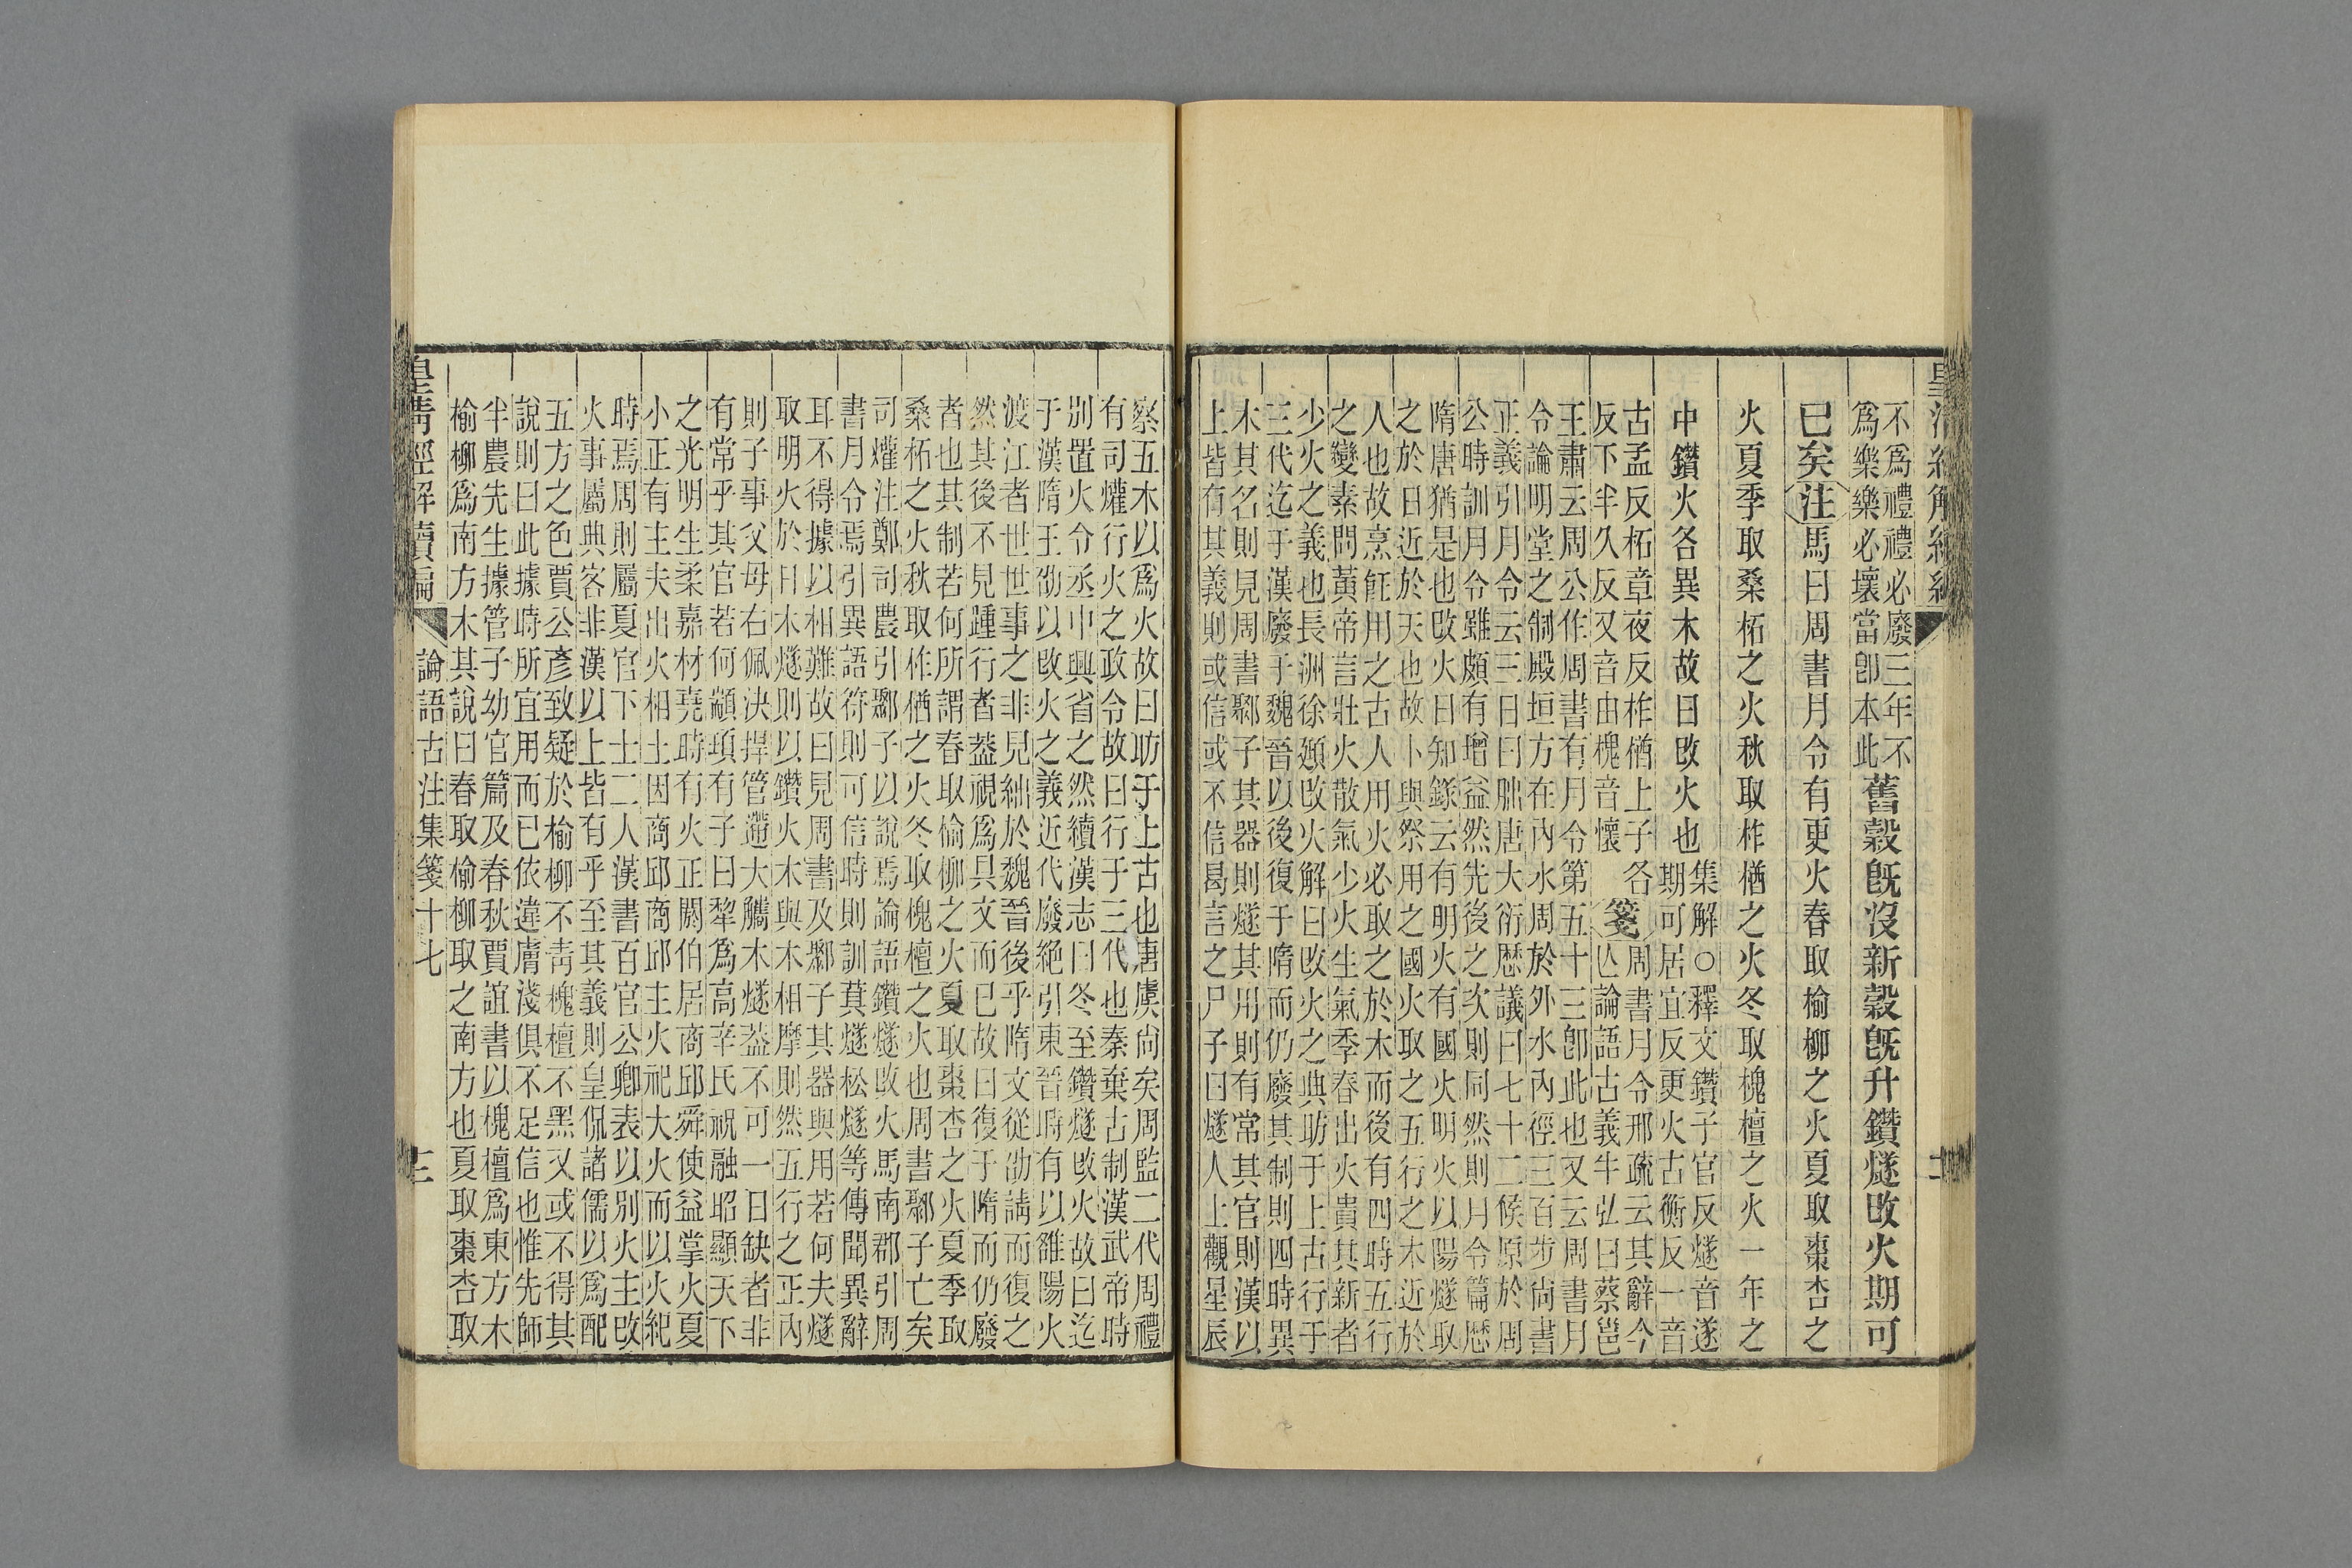 不爲禮禮必廢三年不
爲樂樂必壞當卽本此
舊榖旣沒新榖旣升鑽燧改火期可
已矣注馬曰周書月令有更火春取榆柳之火夏取棗杏之
火夏季取桑柘之火秋取柞楢之火冬取槐檀之火一年之
中鑽火各異木故曰改火也
集解○釋文鑽子官反燧音遂
期可居宜反更火古衡反一音
古孟反柘章夜反柞楢上子各
反下半久反又音由槐音懷
箋
周書月令邢疏云其辭今
亾論語古義牛弘曰蔡邕
王肅云周公作周書有月令第五十三卽此也又云周書月
令論明堂之制殿垣方在內水周於外水內徑三百步尙書
正義引月令云三日曰朏唐大衍歷議曰七十二候原於周
公時訓月令雖頗有增益然先後之次則同然則月令篇歷
隋唐猶是也改火日知錄云有明火有國火明火以陽燧取
之於日近於天也故卜與祭用之國火取之五行之木近於
人也故烹飪用之古人用火必取之於木而後有四時五行
之變素問黃帝言壯火散氣少火生氣季春出火貴其新者
少火之義也長洲徐頲改火解曰改火之典昉于上古行于
三代迄于漢廢于魏晉以後復于隋而仍廢其制則四時異
木其名則見周書鄹子其器則燧其用則有常其官則漢以
上皆有其義則或信或不信曷言之尸子曰燧人上觀星辰
察五木以爲火故曰昉于上古也唐虞尙矣周監二代周禮
有司爟行火之政令故曰行于三代也秦棄古制漢武帝時
別置火令丞中興省之然續漢志曰冬至鑽燧改火故曰迄
于漢隋王劭以改火之義近代廢絕引東晉時有以雒陽火
渡江者世世事之非見絀於魏晉後乎隋文從劭請而復之
然其後不見踵行者蓋視爲具文而已故曰復于隋而仍廢
者也其制若何所謂春取榆柳之火夏取棗杏之火夏季取
桑柘之火秋取柞楢之火冬取槐檀之火也周書鄹子亡矣
司爟注鄭司農引鄹子以說焉論語鑽燧改火馬南郡引周
書月令焉引異語符則可信時則訓萁燧松燧等傳聞異辭
耳不得據以相難故曰見周書及鄹子其器與用若何夫燧
取明火於日木燧則以鑽火木與木相摩則然五行之正內
則子事父母右佩決捍管遰大觿木燧蓋不可一日缺者非
有常乎其官若何顓頊有子曰犂爲高辛氏祝融昭顯天下
之光明生柔嘉材堯時有火正閼伯居商邱舜使益掌火夏
小正有主夫出火相土因商邱商邱主火祀大火而以火紀
時焉周則屬夏官下士二人漢書百官公卿表以別火主改
火事屬典客非漢以上皆有乎至其義則皇侃諸儒以爲配
五方之色賈公彥致疑於榆柳不靑槐檀不黑又或不得其
說則曰此據時所宜用而已依違膚淺俱不足信也惟先師
半農先生據管子幼官篇及春秋賈誼書以槐檀爲東方木
榆柳爲南方木其說曰春取榆柳取之南方也夏取棗杏取
皇淸經解續編
論語古注集箋十七